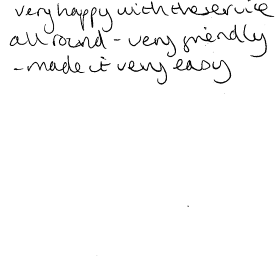 very happy with the service
all round - very friendly
- made it very easy